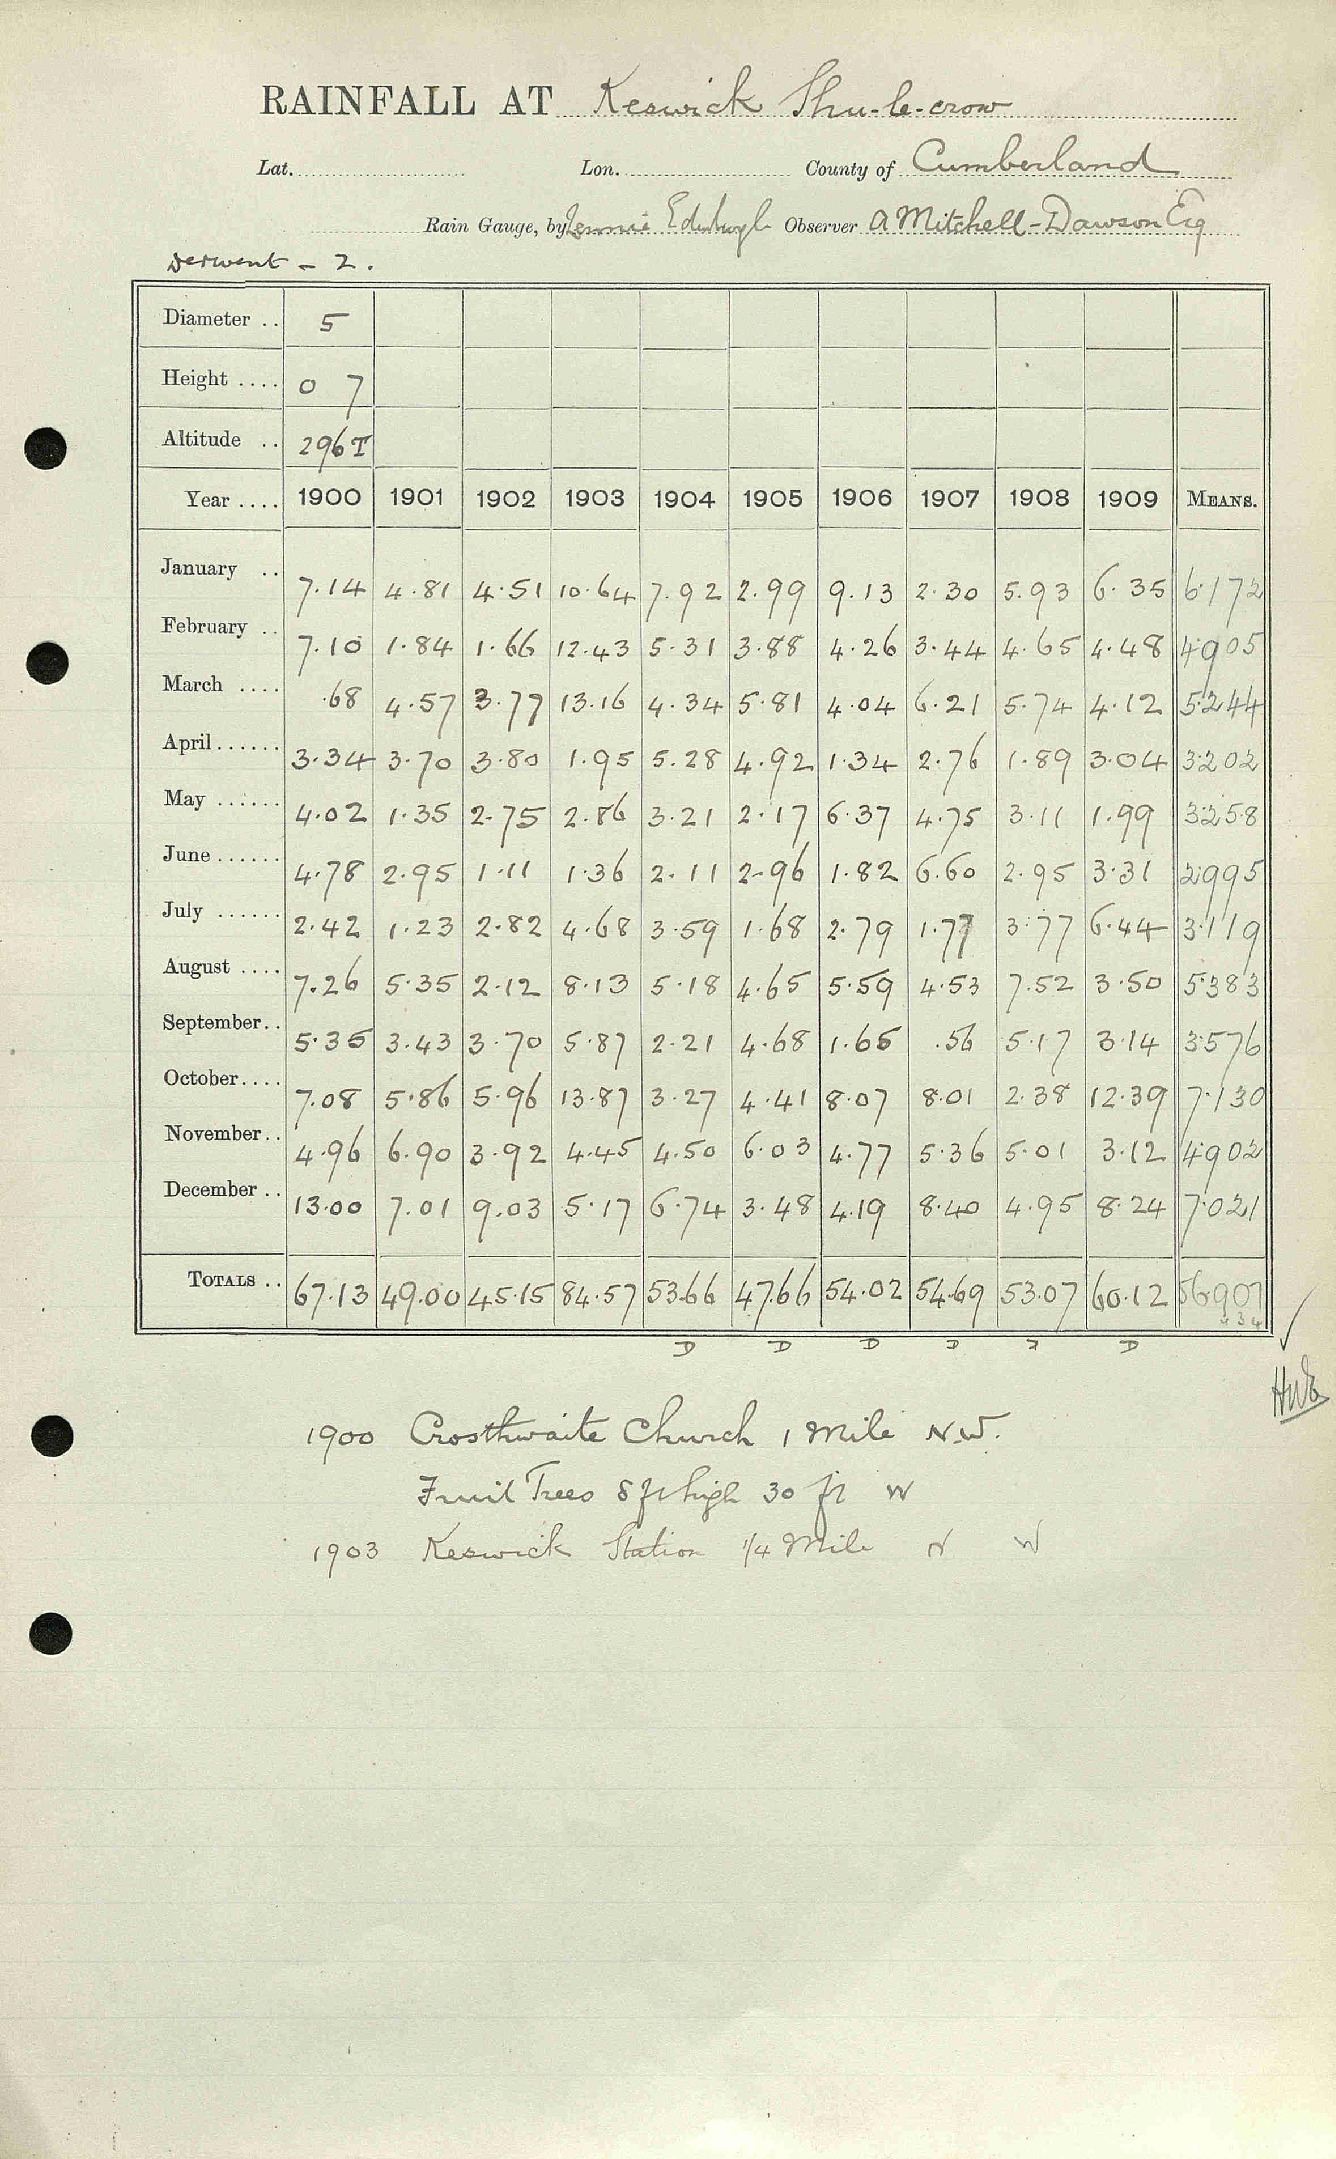 RAINFALL AT Keswick Shu-le-crow
Lat. Lon. County of Cumberland
Rain Gauge, by Edinburgh Observer A Mitchell-Dawson Esq
Derwent - 2.
Diameter .. 5
Height .... 0 7
Altitude .. 296 T
Year .... 1900 1901 1902 1903 1904 1905 1906 1907 1908 1909 MEANS.
January .. 7.14 4.81 4.51 10.64 7.92 2.99 9.13 2.30 5.93 6.35 6.172
February .. 7.10 1.84 1.66 12.43 5.31 3.88 4.26 3.44 4.65 4.48 4.905
March .... .68 4.57 3.77 13.16 4.34 5.81 4.04 6.21 5.74 4.12 5.244
April...... 3.34 3.70 3.80 1.95 5.28 4.92 1.34 2.76 1.89 3.04 3.202
May ...... 4.02 1.35 2.75 2.86 3.21 2.17 6.37 4.75 3.11 1.99 3.258
June...... 4.78 2.95 1.11 1.36 2.11 2.96 1.82 6.60 2.95 3.31 2.995
July ...... 2.42 1.23 2.82 4.68 3.59 1.68 2.79 1.77 3.77 6.44 3.119
August .... 7.26 5.35 2.12 8.13 5.18 4.65 5.59 4.53 7.52 3.50 5.383
September.. 5.35 3.43 3.70 5.87 2.21 4.68 1.65 .56 5.17 3.14 3.576
October.... 7.08 5.86 5.96 13.87 3.27 4.41 8.07 8.01 2.38 12.39 7.130
November.. 4.96 6.90 3.92 4.45 4.50 6.03 4.77 5.36 5.01 3.12 4.902
December .. 13.00 7.01 9.03 5.17 6.74 3.48 4.19 8.40 4.95 8.24 7.021
TOTALS .. 67.13 49.00 45.15 84.57 53.66 47.66 54.02 54.69 53.07 60.12 56.907
D D D D D
1900 Crosthwaite Church 1 Mile N.W.
Fruit Trees 8 ft high 30 ft W
1903 Keswick Station 1/4 Mile N W